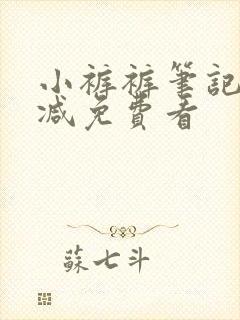 小裤裤筆記
减免費看
蘇七斗